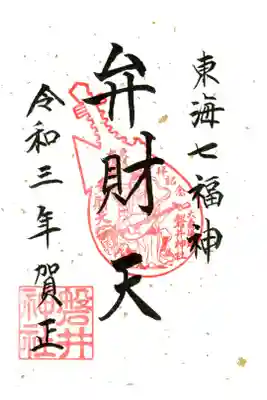 東海七福神
弁財天
令和三年賀正
磐井神社
磐井神社